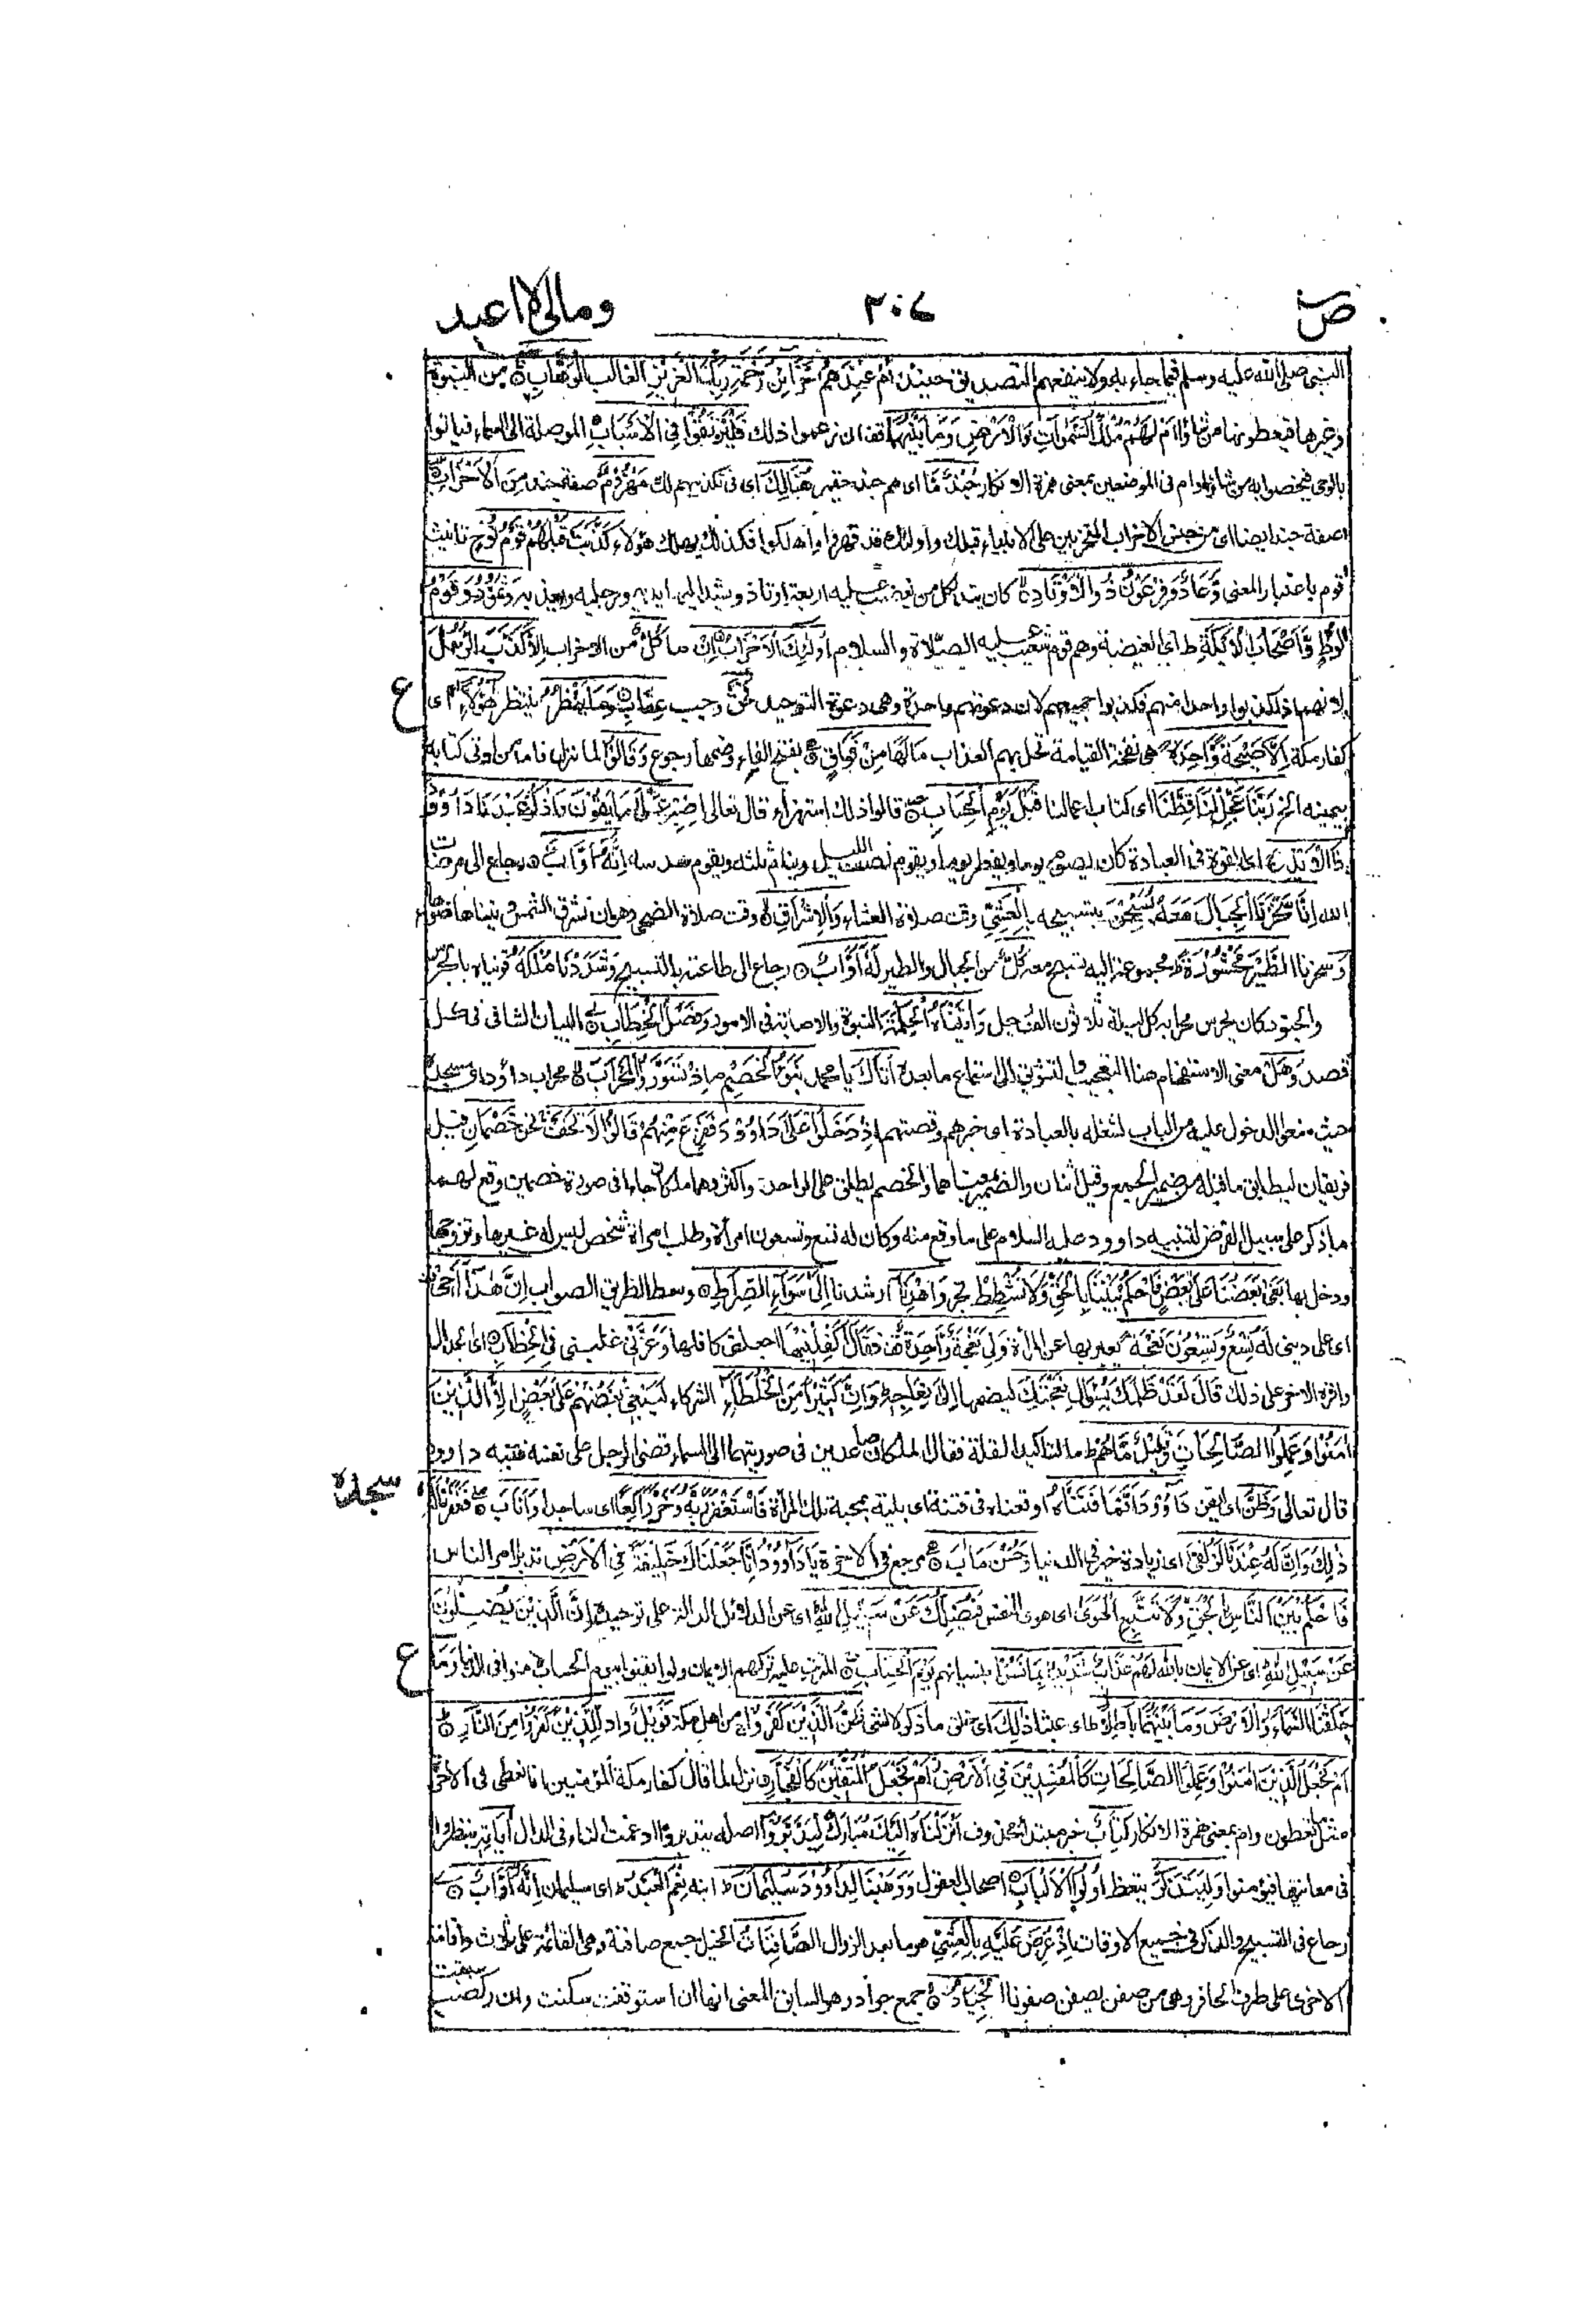 ص
٣٠٤
ومالی لا اعبد
النبی صلی الله علیه وسلم فیما جاء به ولا ینفعهم التصدیق حینئذ اَمْ عِنْدَهُمْ خَزَآئِنُ رَحْمَةِ رَبِّكَ الْعَزِیْزِ الغالب الْوَهَّابِ من النبوة
وغیرها فیعطونها من شاؤا اَمْ لَهُمْ مُلْكُ السَّمٰوَاتِ وَالْاَرْضِ وَمَا بَیْنَهُمَا قف ان زعموا ذلك فَلْیَرْتَقُوْا فِی الْاَسْبَابِ الموصلة الی السماء فیاتوا
بالوحی فیخصوا به من شاؤا وام فی الموضعین بمعنی همزة الانکار جُنْدٌ مَّا ای هم جند حقیر هُنَالِكَ ای فی تکذیبهم لك مَهْزُوْمٌ صفة جند مِنَ الْاَحْزَابِ
صفة جند ایضا ای من جنس الاحزاب المتحزبین علی الانبیاء قبلك واولئك قد قهروا واهلکوا فکذلك یهلك هؤلاء كَذَّبَتْ قَبْلَهُمْ قَوْمُ نُوْحٍ تانیث
قوم باعتبار المعنی وَعَادٌ وَفِرْعَوْنُ ذُو الْاَوْتَادِ کان یتد لکل من یغضب علیه اربعة اوتاد ویشد الیها یدیه ورجلیه ویعذبه وَثَمُوْدُ وَقَوْمُ
لُوْطٍ وَّاَصْحَابُ الْاَیْكَةِ ط ای الغیضة وهم قوم شعیب علیه الصلاة والسلام اُولٰٓئِكَ الْاَحْزَابُ اِنْ ما كُلٌّ من الاحزاب اِلَّا كَذَّبَ الرُّسُلَ
لانهم اذا کذبوا واحدا منهم فکذبوا جمیعهم لان دعوتهم واحدة وهی دعوة التوحید فَحَقَّ وجب عِقَابِ وَمَا یَنْظُرُ ینتظر هٰٓؤُلَآءِ ای
ع
کفار مکة اِلَّا صَیْحَةً وَّاحِدَةً هی نفخة القیامة تحل بهم العذاب مَا لَهَا مِنْ فَوَاقٍ بفتح الفاء وضمها رجوع وَقَالُوْا لما نزل فاما من اوتی کتابه
بیمینه الخ رَبَّنَا عَجِّلْ لَّنَا قِطَّنَا ای کتاب اعمالنا قَبْلَ یَوْمِ الْحِسَابِ قالوا ذلك استهزاء قال تعالی اِصْبِرْ عَلٰی مَا یَقُوْلُوْنَ وَاذْكُرْ عَبْدَنَا دَاوٗدَ
ذَا الْاَیْدِ ج ای القوة فی العبادة کان یصوم یوما ویفطر یوما ویقوم نصف اللیل وینام ثلثه ویقوم سدسه اِنَّهٗ اَوَّابٌ رجاع الی مرضات
الله اِنَّا سَخَّرْنَا الْجِبَالَ مَعَهٗ یُسَبِّحْنَ بتسبیحه بِالْعَشِیِّ وقت صلاة العشاء وَالْاِشْرَاقِ وقت صلاة الضحی وهو ان تشرق الشمس ویتناهی ضوءها
وَسخرنا الطَّیْرَ مَحْشُوْرَةً ط مجموعة الیه تسبح معه كُلٌّ من الجبال والطیر لَّهٗٓ اَوَّابٌ رجاع الی طاعته بالتسبیح وَشَدَدْنَا مُلْكَهٗ قویناه بالحرس
والجنود وکان یحرس محرابه کل لیلة ثلاثون الف رجل وَاٰتَیْنَاهُ الْحِكْمَةَ النبوة والاصابة فی الامور وَفَصْلَ الْخِطَابِ البیان الشافی فی کل
قصد وَهَلْ معنی الاستفهام هنا التعجیب والتشویق الی استماع ما بعده اَتَاكَ یا محمد نَبَؤُا الْخَصْمِ م اِذْ تَسَوَّرُوا الْمِحْرَابَ محراب داود ای مسجده
حیث منعوا الدخول علیه من الباب لشغله بالعبادة ای خبرهم وقصتهم اِذْ دَخَلُوْا عَلٰی دَاوٗدَ فَفَزِعَ مِنْهُمْ قَالُوْا لَا تَخَفْ نحن خَصْمَانِ قیل
فریقان لیطابق ما قبله من ضمیر الجمع وقیل اثنان والضمیر بمعناهما والخصم یطلق علی الواحد واکثر وهما ملکان جاءا فی صورة خصمین وقع لهما
ما ذکر علی سبیل الفرض لتنبیه داود علیه السلام علی ما وقع منه وکان له تسع وتسعون امرأة وطلب امرأة شخص لیس له غیرها وتزوجها
ودخل بها بَغٰی بَعْضُنَا عَلٰی بَعْضٍ فَاحْكُمْ بَیْنَنَا بِالْحَقِّ وَلَا تُشْطِطْ تجر وَاهْدِنَآ ارشدنا اِلٰی سَوَآءِ الصِّرَاطِ وسط الطریق الصواب اِنَّ هٰذَآ اَخِیْ قف
ای علی دینی لَهٗ تِسْعٌ وَّتِسْعُوْنَ نَعْجَةً یعبر بها عن المرأة وَّلِیَ نَعْجَةٌ وَّاحِدَةٌ قف فَقَالَ اَكْفِلْنِیْهَا اجعلنی کافلها وَعَزَّنِیْ غلبنی فِی الْخِطَابِ ای الجدال
واقره الاخر علی ذلك قَالَ لَقَدْ ظَلَمَكَ بِسُؤَالِ نَعْجَتِكَ لیضمها اِلٰی نِعَاجِهٖ ط وَاِنَّ كَثِیْرًا مِّنَ الْخُلَطَآءِ الشرکاء لَیَبْغِیْ بَعْضُهُمْ عَلٰی بَعْضٍ اِلَّا الَّذِیْنَ
اٰمَنُوْا وَعَمِلُوا الصَّالِحَاتِ وَقَلِیْلٌ مَّا هُمْ ط ما لتاکید القلة فقال الملکان صاعدین فی صورتیهما الی السماء قضی الرجل علی نفسه فتنبه داود
قال تعالی وَظَنَّ ای ایقن دَاوٗدُ اَنَّمَا فَتَنَّاهُ اوقعناه فی فتنة ای بلیة بمحبة تلك المرأة فَاسْتَغْفَرَ رَبَّهٗ وَخَرَّ رَاكِعًا ای ساجدا وَّاَنَابَ فَغَفَرْنَا لَهٗ
سجدة
ذٰلِكَ وَاِنَّ لَهٗ عِنْدَنَا لَزُلْفٰی ای زیادة خیر فی الدنیا وَحُسْنَ مَاٰبٍ مرجع فی الاخرة یَا دَاوٗدُ اِنَّا جَعَلْنَاكَ خَلِیْفَةً فِی الْاَرْضِ تدبر امر الناس
فَاحْكُمْ بَیْنَ النَّاسِ بِالْحَقِّ وَلَا تَتَّبِعِ الْهَوٰی ای هوی النفس فَیُضِلَّكَ عَنْ سَبِیْلِ اللّٰهِ ای عن الدلائل الدالة علی توحیده اِنَّ الَّذِیْنَ یَضِلُّوْنَ
عَنْ سَبِیْلِ اللّٰهِ ای عن الایمان بالله لَهُمْ عَذَابٌ شَدِیْدٌ بِمَا نَسُوْا بنسیانهم یَوْمَ الْحِسَابِ المرتب علیه ترکهم الایمان ولو ایقنوا بیوم الحساب لامنوا فی الدنیا وَمَا
ع
خَلَقْنَا السَّمَآءَ وَالْاَرْضَ وَمَا بَیْنَهُمَا بَاطِلًا ط ای عبثا ذٰلِكَ ای خلق ما ذکر لا لشئ ظَنُّ الَّذِیْنَ كَفَرُوْا ج من اهل مکة فَوَیْلٌ واد لِّلَّذِیْنَ كَفَرُوْا مِنَ النَّارِ
اَمْ نَجْعَلُ الَّذِیْنَ اٰمَنُوْا وَعَمِلُوا الصَّالِحَاتِ كَالْمُفْسِدِیْنَ فِی الْاَرْضِ اَمْ نَجْعَلُ الْمُتَّقِیْنَ كَالْفُجَّارِ نزل لما قال کفار مکة للمؤمنین انا نعطی فی الاخرة
مثل ما تعطون وام بمعنی همزة الانکار كِتَابٌ خبر مبتدا محذوف اَنْزَلْنَاهُ اِلَیْكَ مُبَارَكٌ لِّیَدَّبَّرُوْٓا اصله یتدبروا ادغمت التاء فی الدال اٰیَاتِهٖ ینظروا
فی معانیها فیؤمنوا وَلِیَتَذَكَّرَ یتعظ اُولُوا الْاَلْبَابِ اصحاب العقول وَوَهَبْنَا لِدَاوٗدَ سُلَیْمَانَ ط ابنه نِعْمَ الْعَبْدُ ط ای سلیمان اِنَّهٗٓ اَوَّابٌ
رجاع فی التسبیح والذکر فی جمیع الاوقات اِذْ عُرِضَ عَلَیْهِ بِالْعَشِیِّ هو ما بعد الزوال الصَّافِنَاتُ الخیل جمع صافنة وهی القائمة علی ثلاث واقامة
الاخری علی طرف الحافر وهی من صفن یصفن صفونا الْجِیَادُ جمع جواد وهو السابق المعنی انها ان استوقفت سکنت وان رکضت سبقت